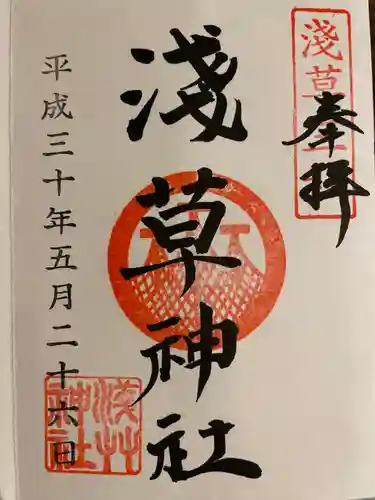 奉拝
淺草神社
平成三十年五月二十六日
浅草神社